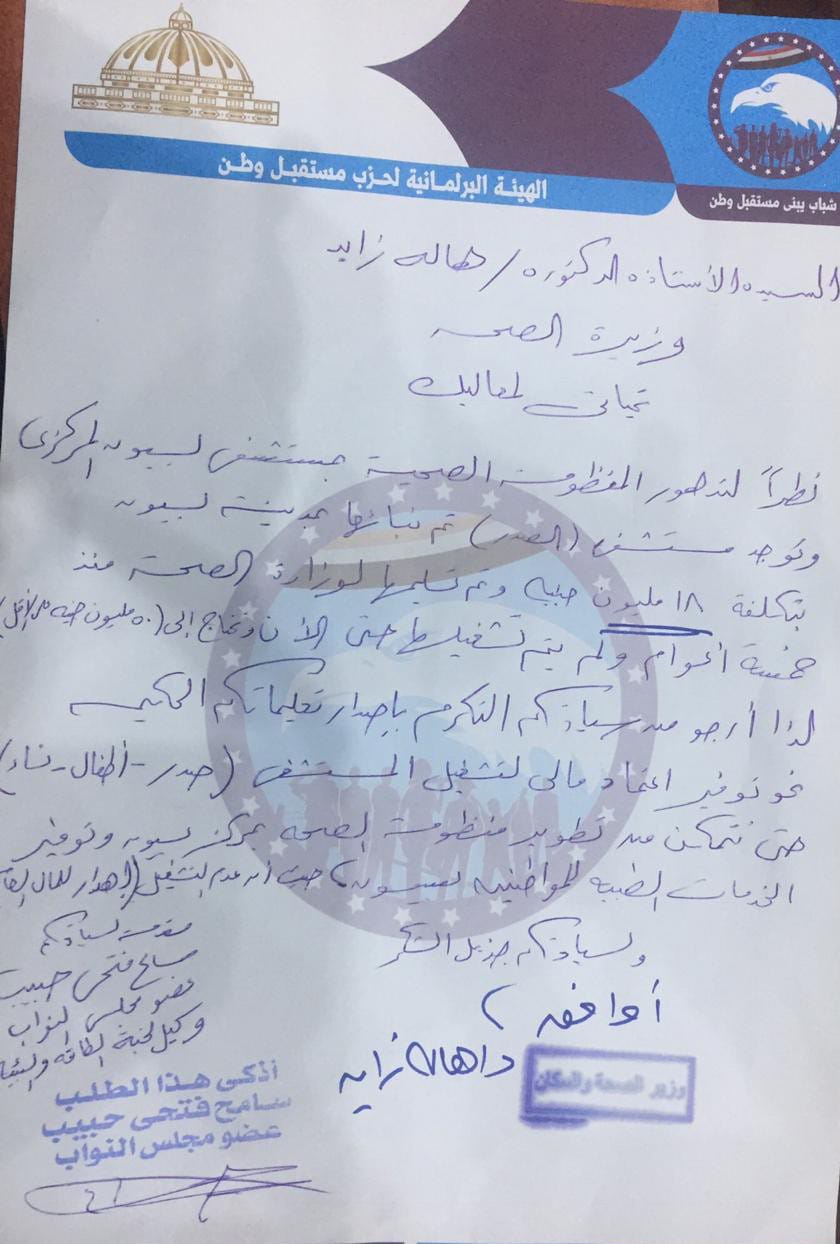 الهيئة البرلمانية لحزب مستقبل وطن
شباب يبنى مستقبل وطن
السيده الأستاذه الدكتوره / هاله زايد
وزيرة الصحه
تحياتى لمعاليك
نظراً لتدهور المنظومة الصحية بمستشفى بسيون المركزى
وتوجد مستشفى (الصدر) تم بنائها بمدينة بسيون
بتكلفة ١٨ مليون جنيه وتم تسليمها لوزارة الصحة منذ
خمسة أعوام ولم يتم تشغيلها حتى الأن وتحتاج إلى (٥٠ مليون جنيه على الأقل)
لذا أرجو من سيادتكم التكرم بإصدار تعليماتكم الحكيمه
نحو توفير اعتماد مالى لتشغيل المستشفى (صدر - أطفال - نساء)
حتى نتمكن من تطوير منظومة الصحه بمركز بسيون وتوفير
الخدمات الطبيه للمواطنين ببسيون، حيث أن عدم التشغيل (إهدار للمال العام
ولسيادتكم جزيل الشكر
مقدمه لسيادتكم
سامح فتحى حبيب
عضو مجلس النواب
وكيل لجنة الطاقه والبيئة
أوافق
د/ هاله زايد
وزير الصحة والسكان
أذكى هذا الطلب
سامح فتحى حبيب
عضو مجلس النواب